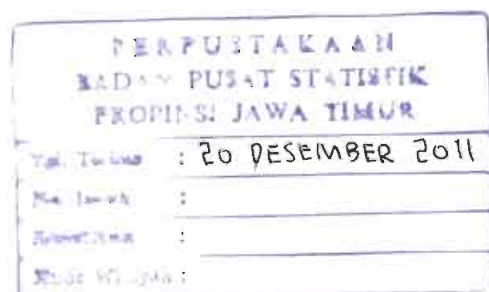 PERPUSTAKAAN
BADAN PUSAT STATISTIK
PROPINSI JAWA TIMUR
Tgl. Terima : 20 DESEMBER 2011
:
:
Kode Wilayah :